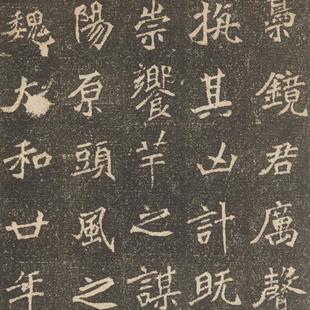 梟鏡君厲聲
其凶計既
崇饗芊之謀
陽原頭風之
魏大和廿年